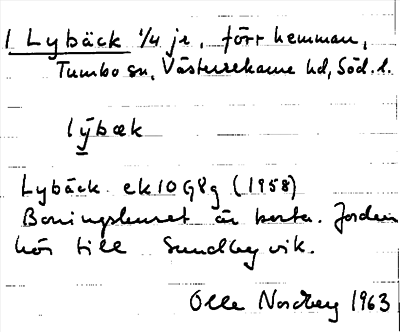 1 Lybäck 1/4 je, förr hemman,
Tumbo sn, Västerrekarne hd, Söd. l.
ly̆bæk
Lybäck ek 10 G8g (1958)
Boningshuset är borta. Jorden
hör till Sundbyvik.
Olle Nordberg 1963